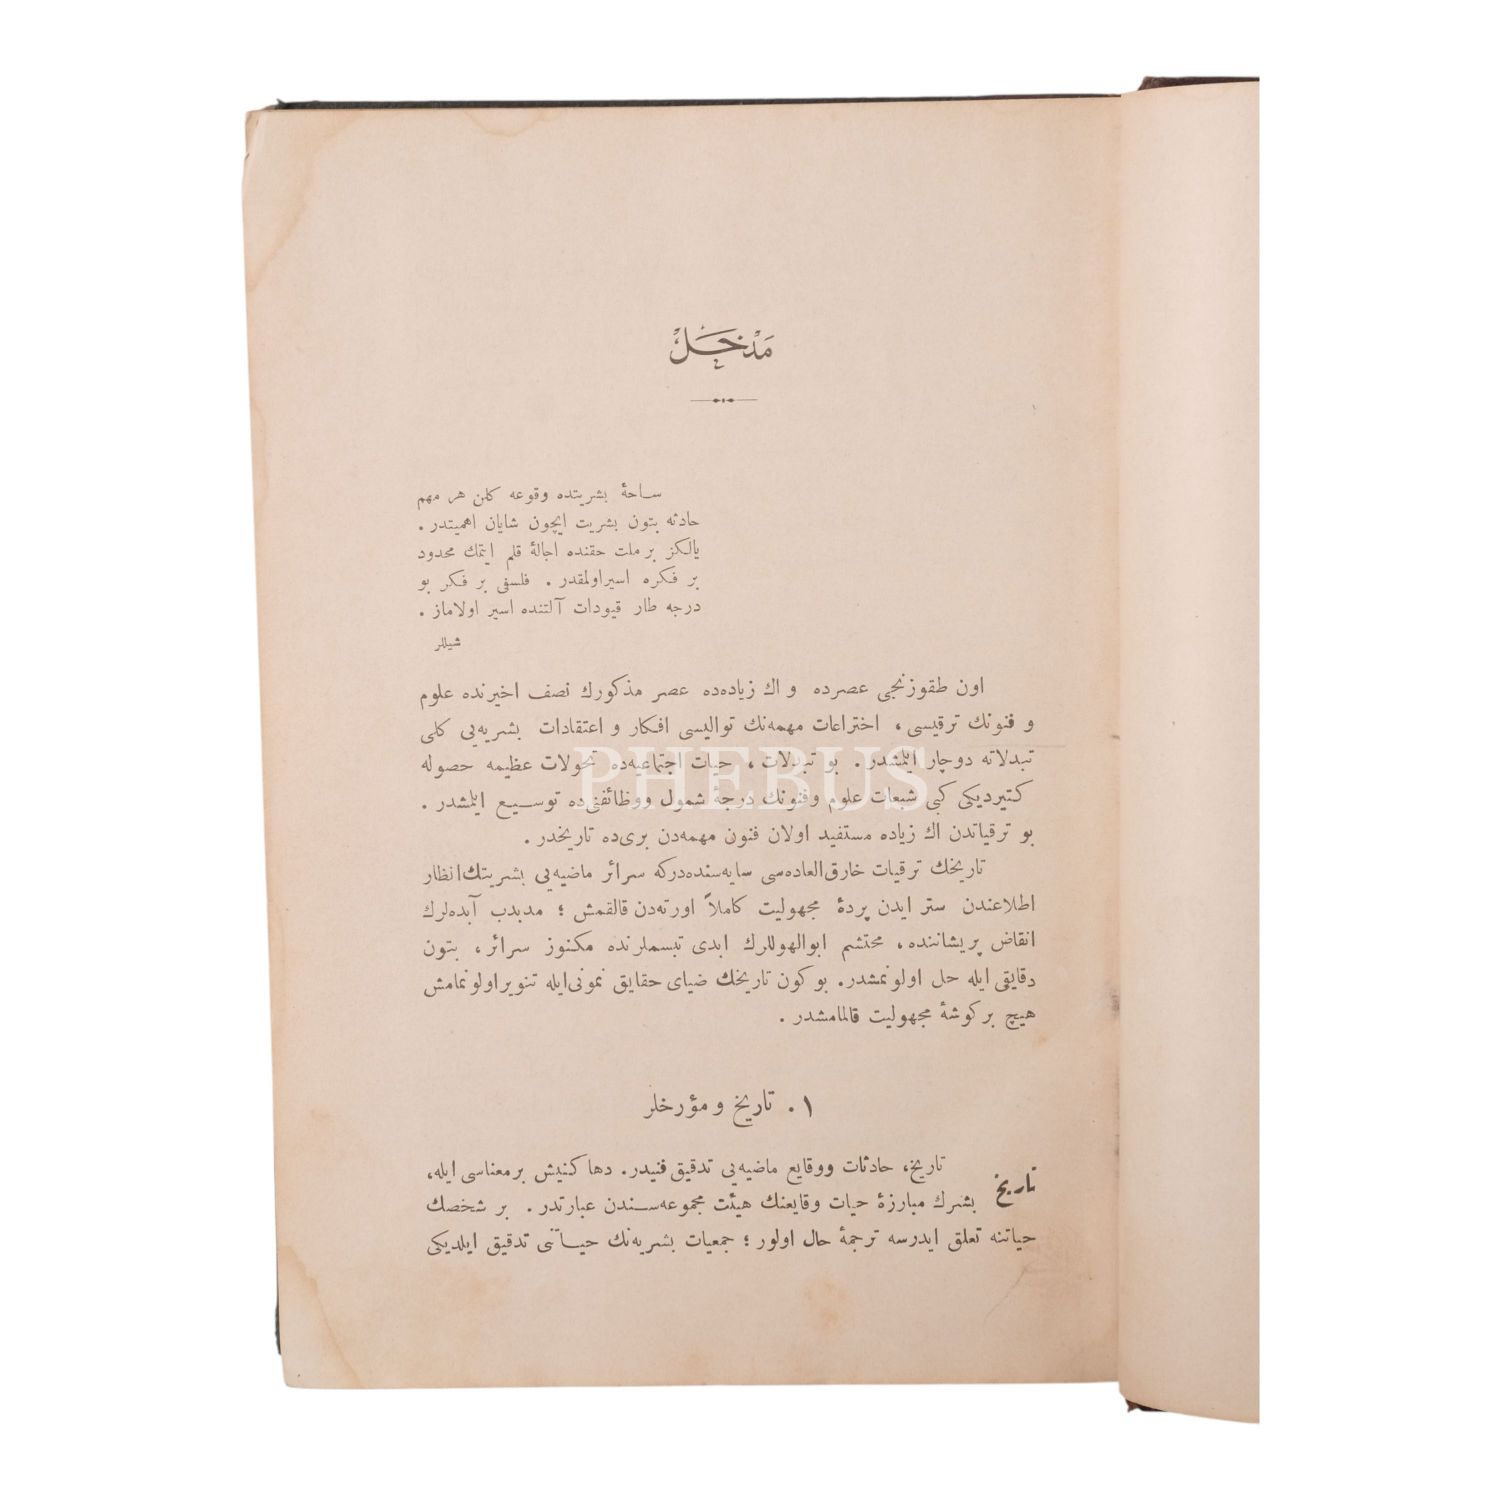 مَدْخَلْ
ساحهٔ بشریتده وقوعه کلن هر مهم
حادثه بتون بشریت ایچون شایان اهمیتدر .
یالکز بر ملت حقنده اجالهٔ قلم ایتمك محدود
بر فکره اسیراولمقدر . فلسفی بر فکر بو
درجه طار قیودات آلتنده اسیر اولاماز .
شیللر
اون طقوزنجی عصرده و اك زیاده‌ده عصر مذکورك نصف اخیرنده علوم
و فنونك ترقیسی ، اختراعات مهمه‌نك توالیسی افکار و اعتقادات بشریه‌یی کلی
تبدلاته دوچار ایلمشدر . بو تبدلات ، حیات اجتماعیه‌ده تحولات عظیمه حصوله
کتیردیکی کبی شبعات علوم وفنونك درجهٔ شمول ووظائفنی‌ده توسیع ایلمشدر .
بو ترقیاتدن اك زیاده مستفید اولان فنون مهمه‌دن بری‌ده تاریخدر .
تاریخك ترقیات خارق‌العاده‌سی سایه‌سنده‌درکه سرائر ماضیه‌یی بشریتك‌انظار
اطلاعندن ستر ایدن پردهٔ مجهولیت کاملاً اورته‌دن قالقمش ؛ مدبدب آبده‌لرك
انقاض پریشاننده ، محتشم ابوالهوللرك ابدی تبسملرنده مکنوز سرائر ، بتون
دقایقی ایله حل اولونمشدر . بوکون تاریخك ضیای حقایق نمونی‌ایله تنویراولونمامش
هیچ برکوشهٔ مجهولیت قالمامشدر .
۱ . تاریخ و مؤرخلر
تاریخ
تاریخ، حادثات ووقایع ماضیه‌یی تدقیق فنیدر . دها کنیش برمعناسی ایله،
بشرك مبارزهٔ حیات وقایعنك هیئت مجموعه‌سندن عبارتدر . بر شخصك
حیاتنه تعلق ایدرسه ترجمهٔ حال اولور ؛ جمعیات بشریه‌نك حیاتنی تدقیق ایلدیکی
PHEBUS